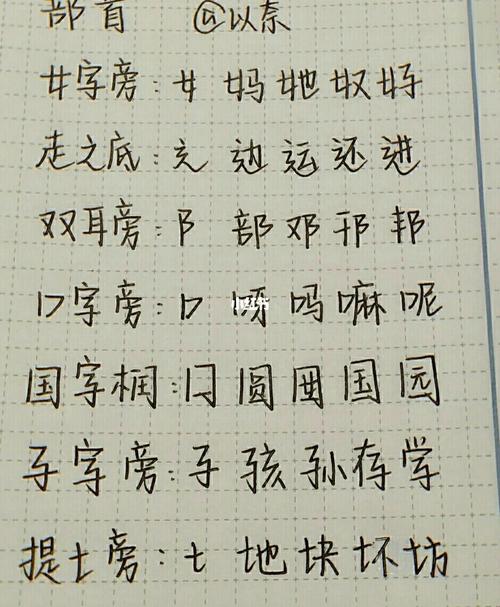 部首 @以奈
女字旁：女 妈 她 奴 好
走之底：辶 边 运 还 进
双耳旁：阝 部 邓 邗 邦
口字旁：口 呀 吗 嘛 呢
小红书
国字框：囗 圆 囯 国 园
子字旁：子 孩 孙 存 学
提土旁：土 地 块 坏 坊